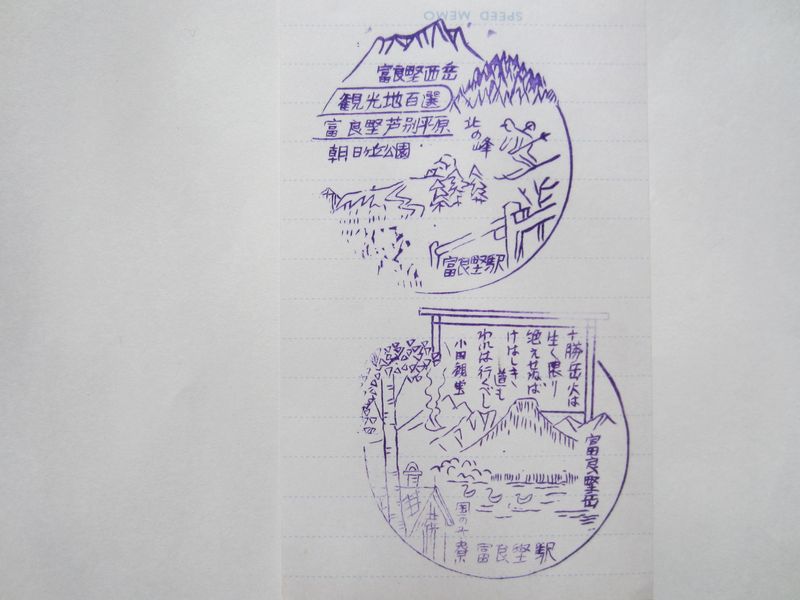 SPEED MEMO
富良野西岳
観光地百選
富良野芦別平原
朝日ヶ丘公園
北の峰
富良野駅
十勝岳火は
生く限り
絶えせねば
けはしき
道も
われは行くべし
小田観螢
富良野岳
富良野駅